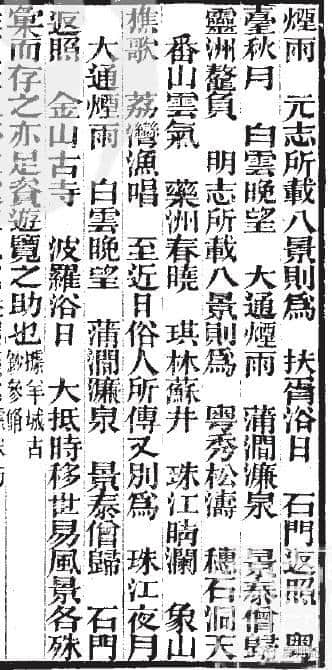 煙雨　元志所載八景則爲　扶胥浴日　石門返照　粵
臺秋月　白雲晚望　大通煙雨　蒲澗濂泉　景泰僧歸
靈洲鼇負　明志所載八景則爲　粵秀松濤　穗石洞天
番山雲氣　藥洲春曉　琪林蘇井　珠江晴瀾　象山
樵歌　荔灣漁唱　至近日俗人所傳又別爲　珠江夜月
大通煙雨　白雲晚望　蒲澗濂泉　景泰僧歸　石門
返照　金山古寺　波羅浴日　大抵時移世易風景各殊
彙而存之亦足資遊覽之助也據羊城古
鈔參脩